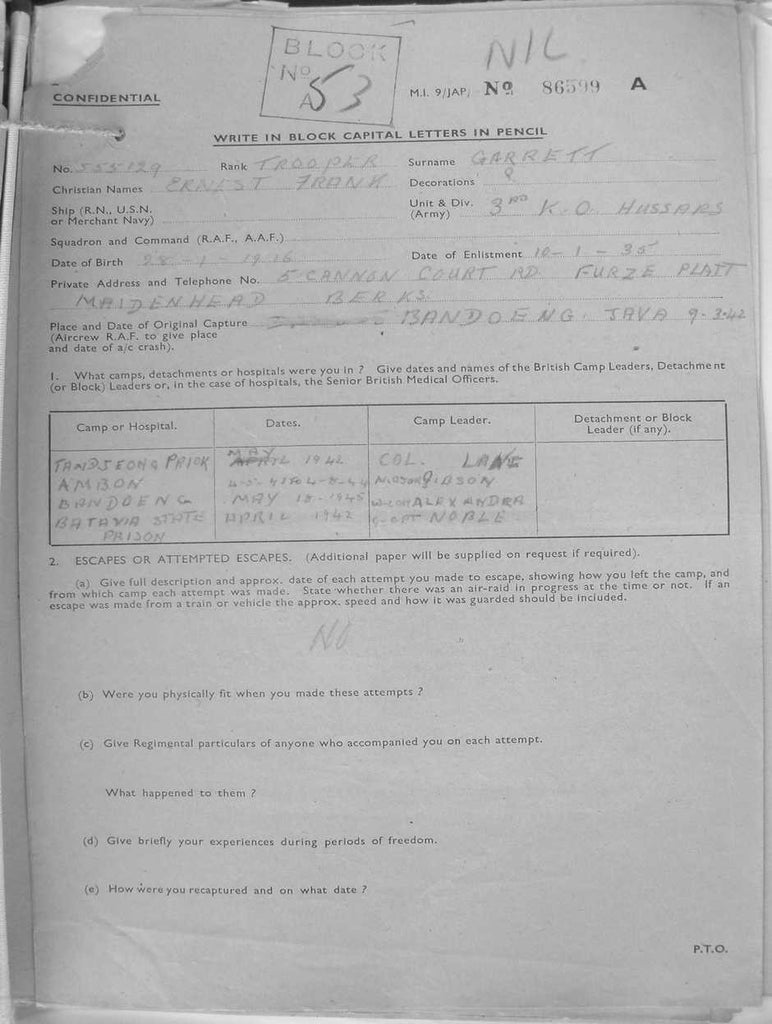 BLOCK
No
A53
NIL
CONFIDENTIAL
M.I. 9/JAP/ No 86599 A
WRITE IN BLOCK CAPITAL LETTERS IN PENCIL
No. 555129 Rank TROOPER Surname GARRETT
Christian Names ERNEST FRANK Decorations
Ship (R.N., U.S.N. or Merchant Navy)
Unit & Div. (Army) 3RD K.O. HUSSARS
Squadron and Command (R.A.F., A.A.F.)
Date of Birth 28-1-1916 Date of Enlistment 10-1-35
Private Address and Telephone No. 5 CANNON COURT RD FURZE PLATT
MAIDENHEAD BERKS.
Place and Date of Original Capture BANDOENG. JAVA 9-3-42
(Aircrew R.A.F. to give place
and date of a/c crash).
1. What camps, detachments or hospitals were you in ? Give dates and names of the British Camp Leaders, Detachment
(or Block) Leaders or, in the case of hospitals, the Senior British Medical Officers.
Camp or Hospital. Dates. Camp Leader. Detachment or Block
Leader (if any).
TANDJEONG PRIOK MAY 1942 COL. LANE
AMBON GIBSON
BANDOENG MAY 18-1945 ALEXANDRA
BATAVIA STATE APRIL 1942 NOBLE
PRISON
2. ESCAPES OR ATTEMPTED ESCAPES. (Additional paper will be supplied on request if required).
(a) Give full description and approx. date of each attempt you made to escape, showing how you left the camp, and
from which camp each attempt was made. State whether there was an air-raid in progress at the time or not. If an
escape was made from a train or vehicle the approx. speed and how it was guarded should be included.
NO
(b) Were you physically fit when you made these attempts ?
(c) Give Regimental particulars of anyone who accompanied you on each attempt.
What happened to them ?
(d) Give briefly your experiences during periods of freedom.
(e) How were you recaptured and on what date ?
P.T.O.